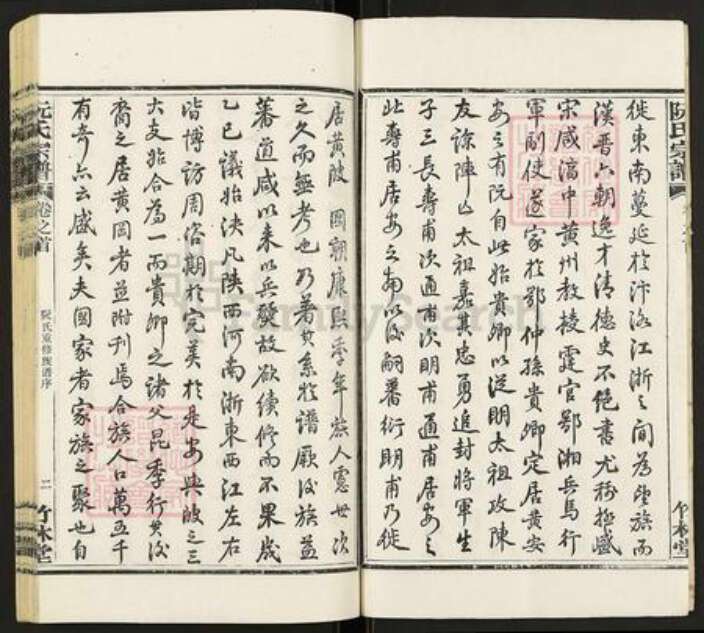 阮氏宗譜
徙東南蔓延於汴洛江浙之間為望族而
漢晋六朝逸才清德史不絕書尤稱極盛
宋咸淳中黄州教授霆官鄂湘兵馬行
軍副使遂家於鄂仲孫貴卿定居黄安
安之有阮自此始貴卿以從明太祖攻陳
友諒陣亡太祖嘉其忠勇追封將軍生
子三長壽甫次通甫次明甫通甫居安之
此壽甫居安之南以後嗣蕃衍明甫乃徙
竹林堂
居黄陂國朝康熙季年庶人憲世次
之久而無考也乃著其系於譜厥後族益
蕃道咸以來以兵發故欲續修而不果歲
乙巳議始決凡陝西河南浙東西江左右
皆博訪周咨期於完美於是安與陂之三
大支始合為一而貴卿之諸父昆季行其後
裔之居黄冈者並附刊焉合族人口萬五千
有奇亦云盛矣夫國家者家族之聚也自
阮氏宗譜
卷之首
阮氏重修族譜序
二
竹林堂
FamilySearch